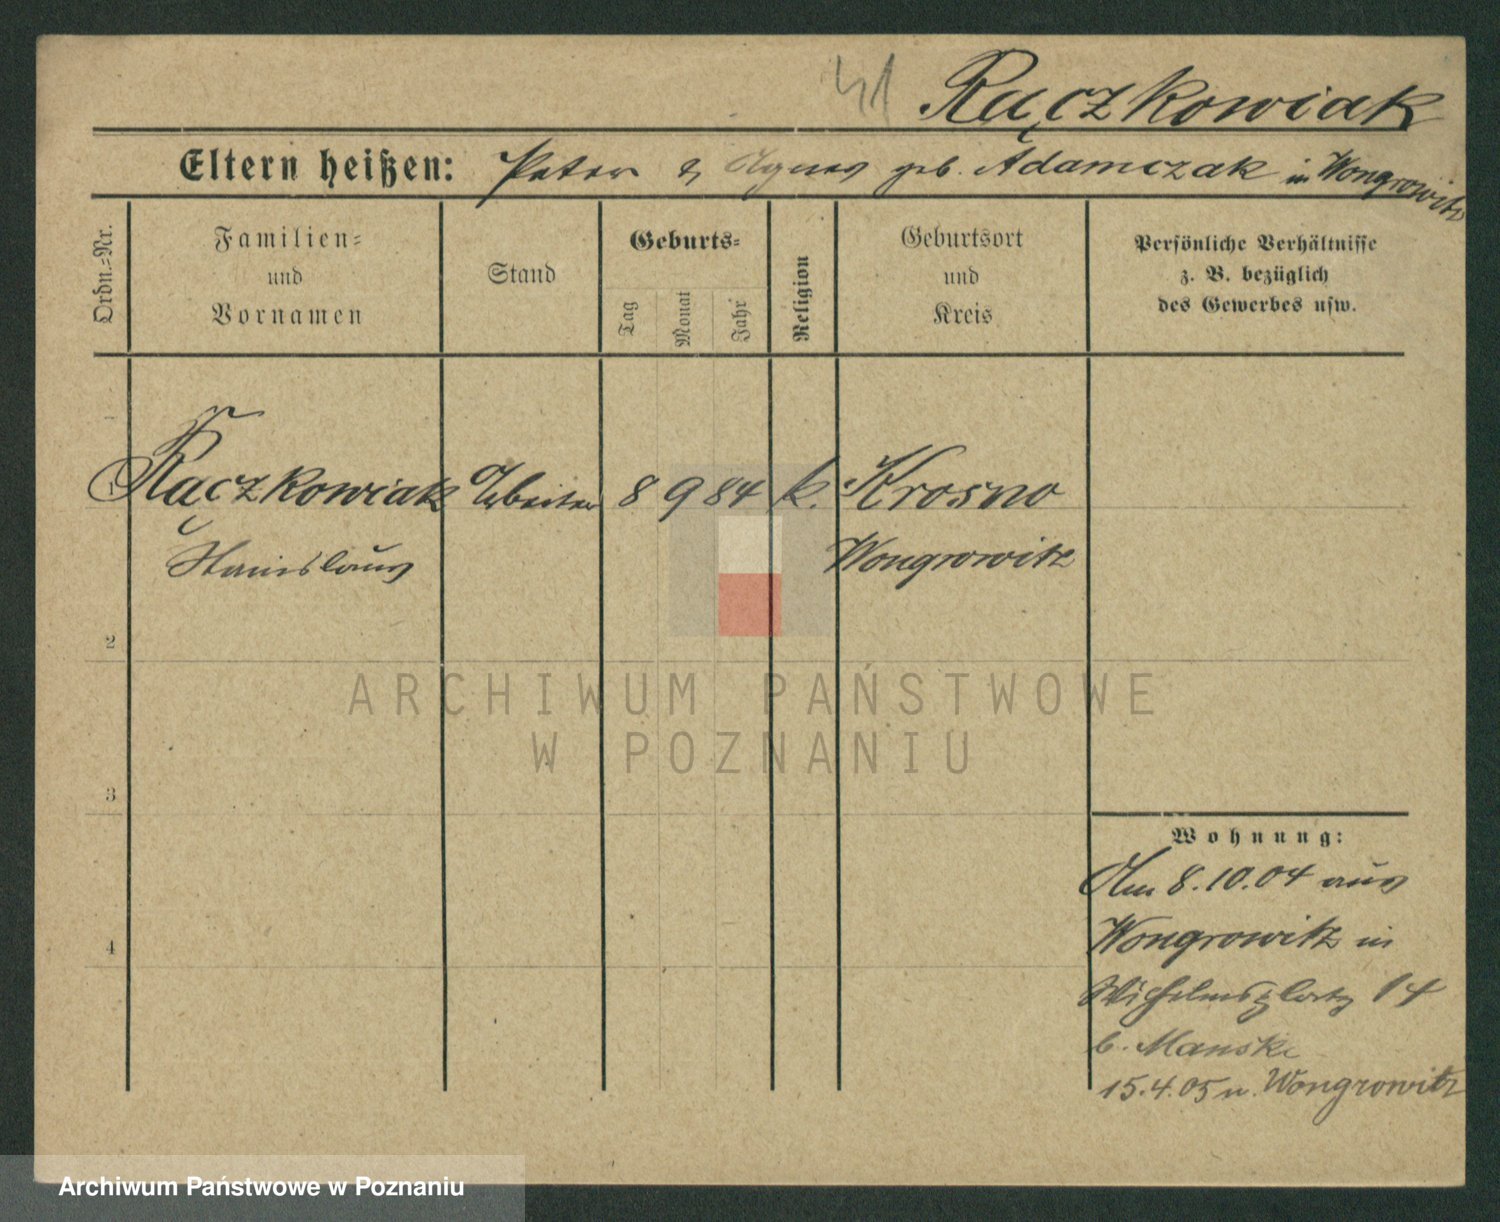 41 Rączkowiak
Eltern heißen: Peter & Agnes geb. Adamczak in Wongrowitz
Ordn.=Nr.
Familien=
und
Vornamen
Stand
Geburts=
Tag
Monat
Jahr
Religion
Geburtsort
und
Kreis
Persönliche Verhältnisse
z. B. bezüglich
des Gewerbes usw.
1 Rączkowiak Arbeiter 8 9 84 k. Krosno
Stanislaus Wongrowitz
2
3
4
Wohnung:
Am 8.10.04 aus
Wongrowitz in
Wilhelmsplatz 14
b. Manske
15.4.05 n. Wongrowitz
ARCHIWUM PAŃSTWOWE
W POZNANIU
Archiwum Państwowe w Poznaniu